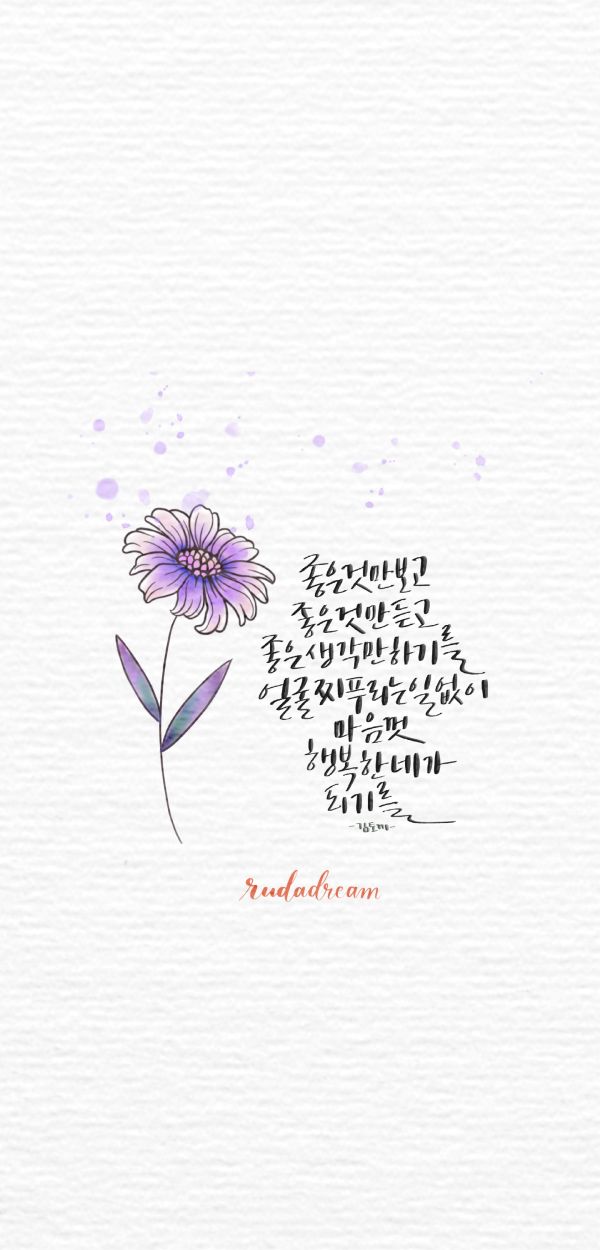 좋은것만보고
좋은것만듣고
좋은생각만하기를
얼굴찌푸리는일없이
마음껏
행복한네가
되기를
-김토끼-
rudadream